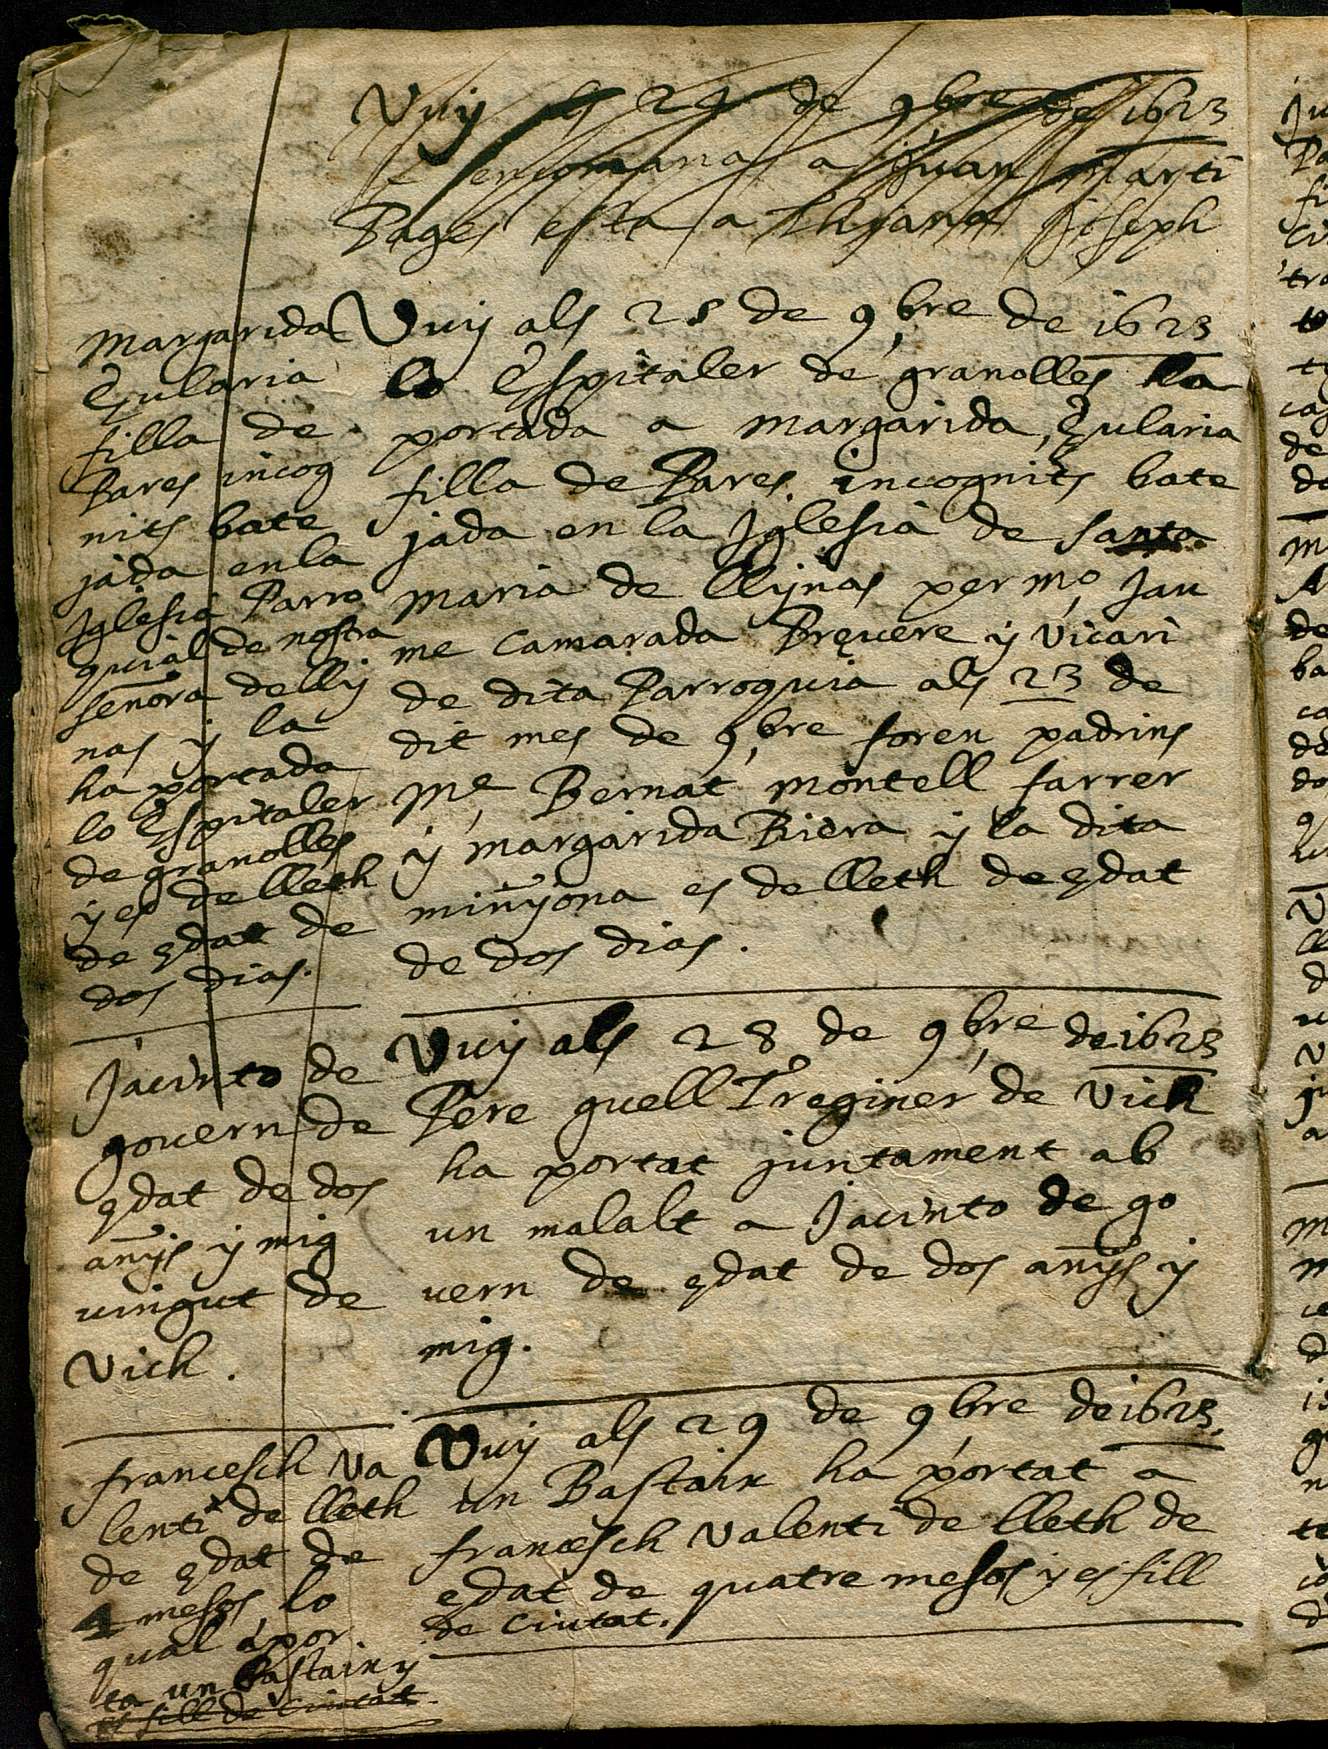 Vuy als 24 de 9bre de 1623
encomana a Juan Marti
Pages esta a Joseph
Margarida
Eularia
filla de
Pares incog
nits bate
jada en la
Iglesia Parro
quial de nostra
señora de lly
nas y la
ha portada
lo Espitaler
de granolles
y es de lleth
de edat de
dos dias.
Vuy als 28 de 9bre de 1623
lo Espitaler de granolles ha
portada a Margarida, Eularia
filla de Pares incognits bate
jada en la Iglesia de santa
maria de llynas per mo Jau
me Camarada Prevere y vicari
de dita Parroquia als 23 de
dit mes de 9bre foren padrins
Me Bernat montell farrer
y margarida Riera y la dita
minyona es de lleth de edat
de dos dias.
Jacinto de
govern de
edat de dos
anys y mig
vingut de
Vich.
Vuy als 28 de 9bre de 1623
Pere guell Treginer de Vich
ha portat juntament ab
un malalt a Jacinto de go
vern de edat de dos anys y
mig.
francesch Va
lenti de lleth
de edat de
4 mesos lo
qual a por
ta un Bastaix y
es fill de Ciutat
Vuy als 29 de 9bre de 1623.
un Bastaix ha portat a
francesch Valenti de lleth de
edat de quatre mesos y es fill
de Ciutat.